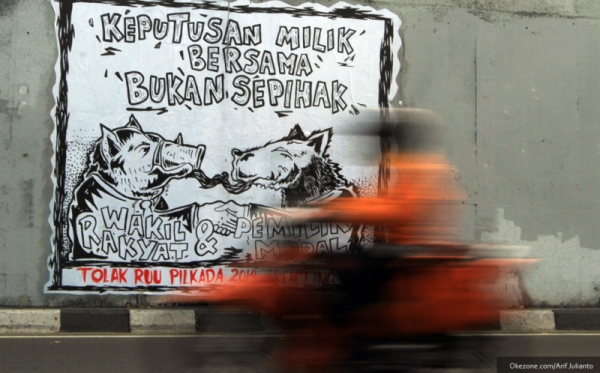 KEPUTUSAN MILIK
BERSAMA
BUKAN SEPIHAK
WAKIL
RAKYAT & PEMILIK
MODAL
TOLAK RUU PILKADA
Okezone.com/Arif Julianto